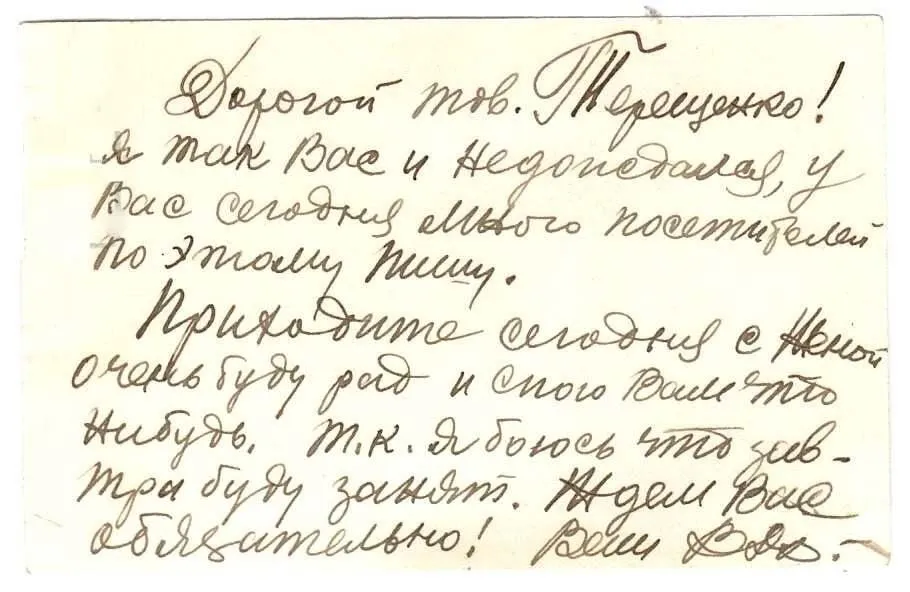 Дорогой тов. Терещенко!
Я так Вас и недожедался, у
Вас сегодня много посетителей
по этому пишу.
Приходите сегодня с женой
очень буду рад и спою Вам что
нибудь. Т.к. я боюсь что зав-
тра буду занят. Ждем Вас
обязательно! Ваш